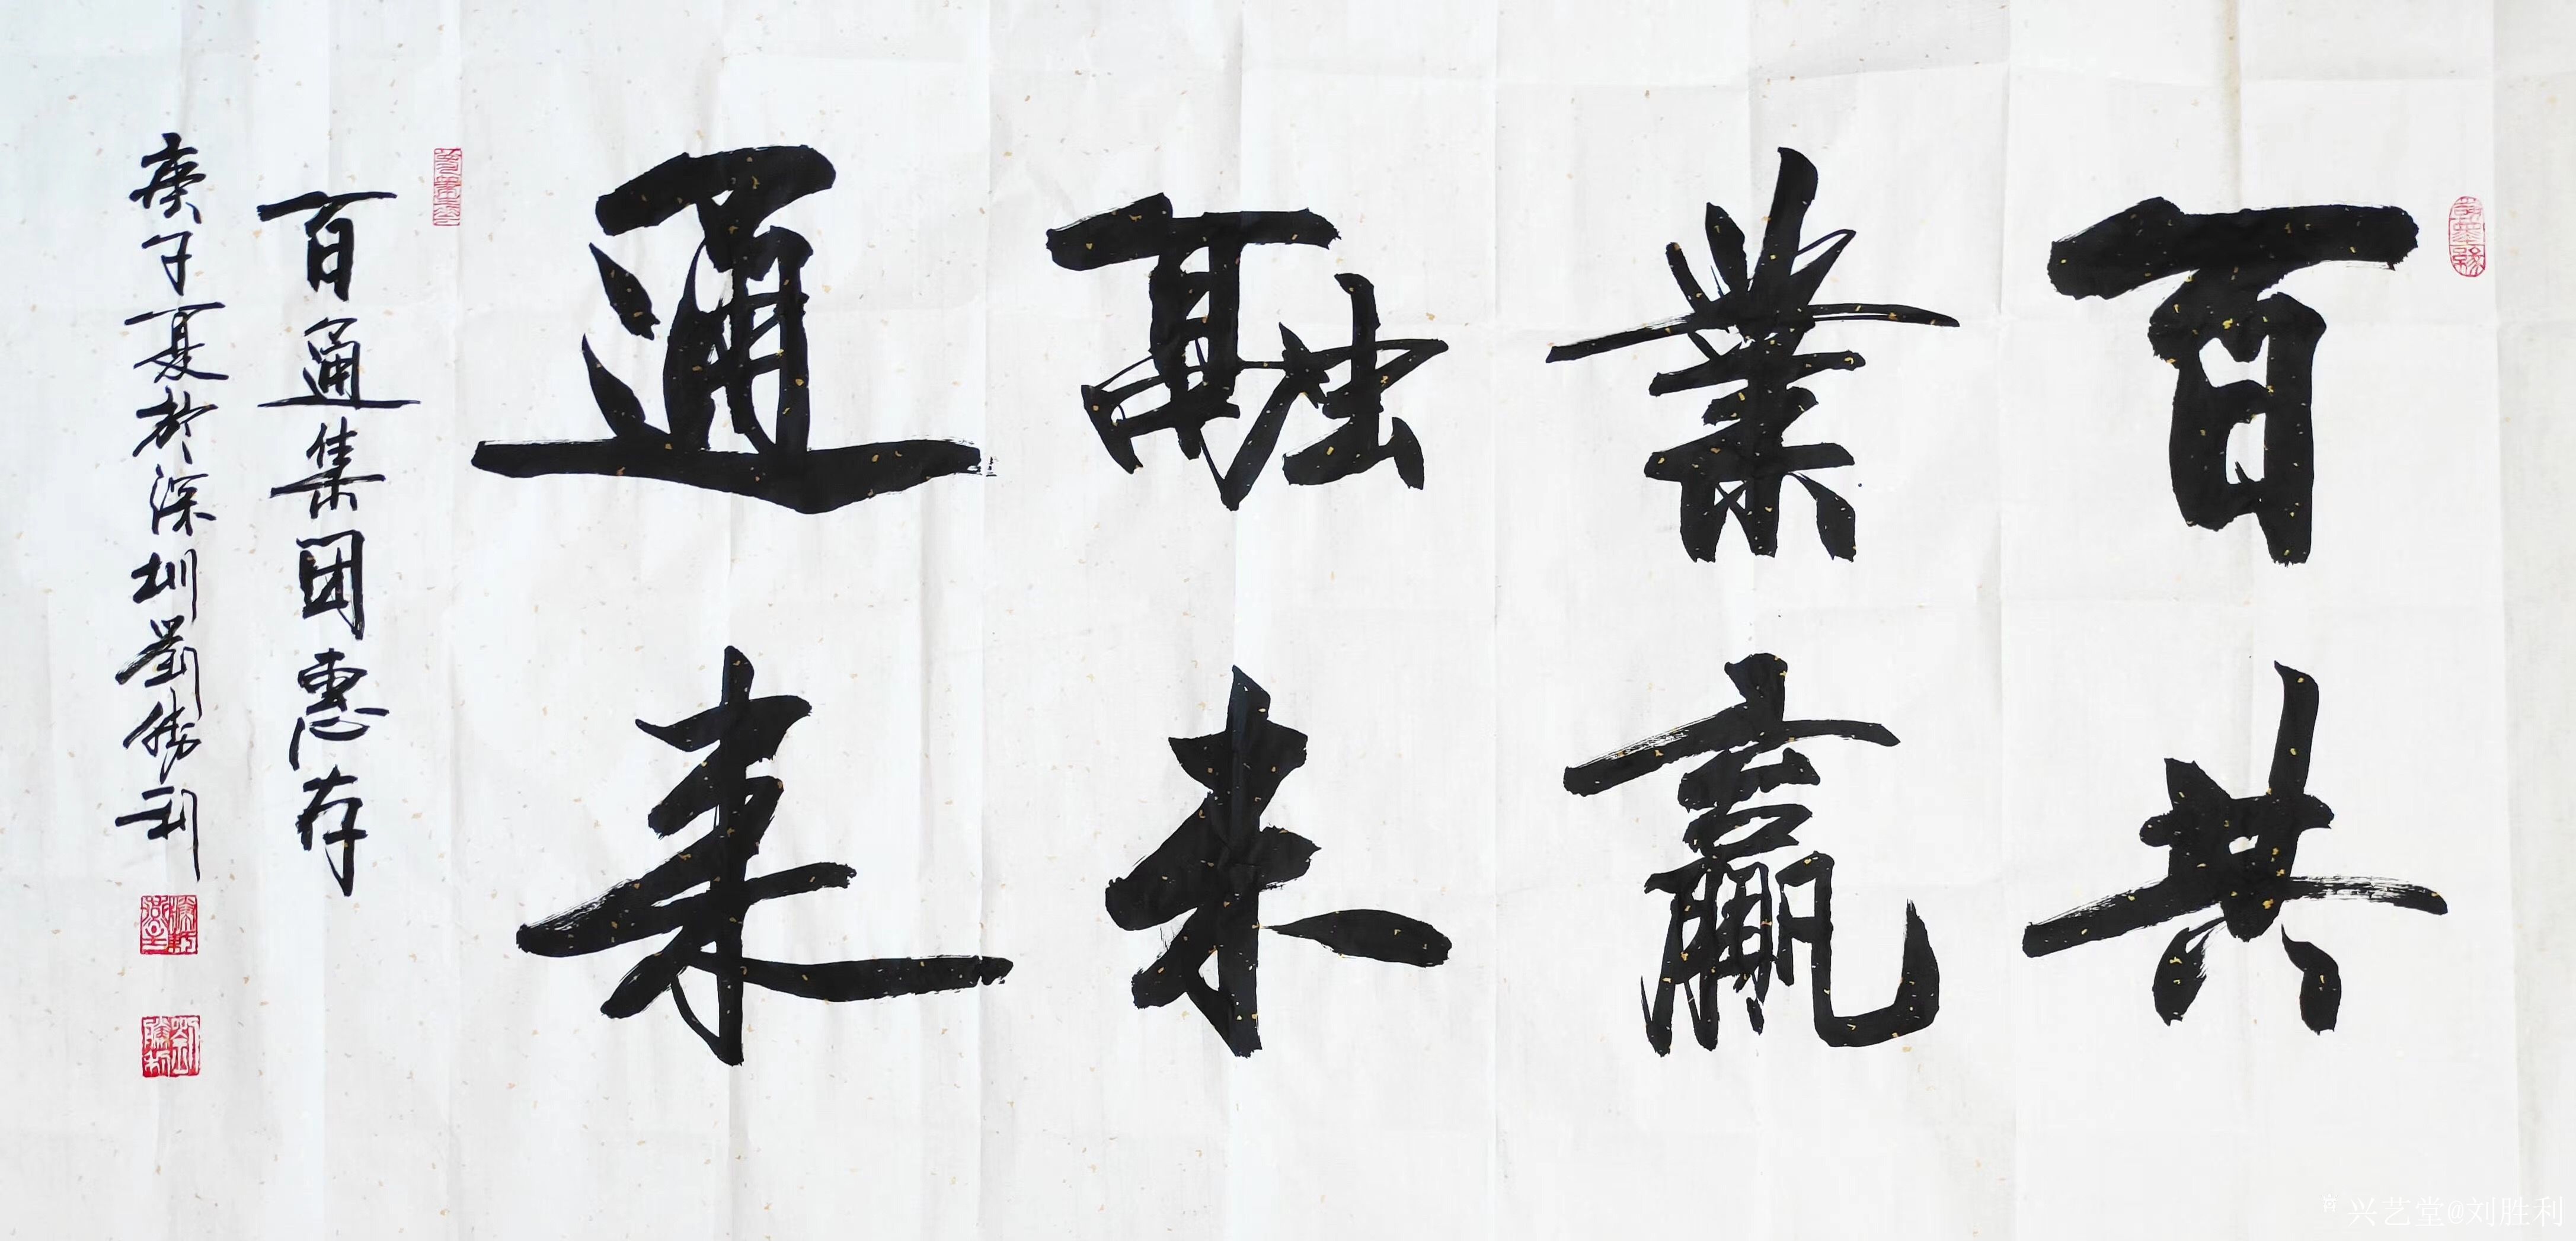 百共
業贏
融未
通来
百通集团惠存
庚子夏於深圳劉勝利
兴艺堂@刘胜利